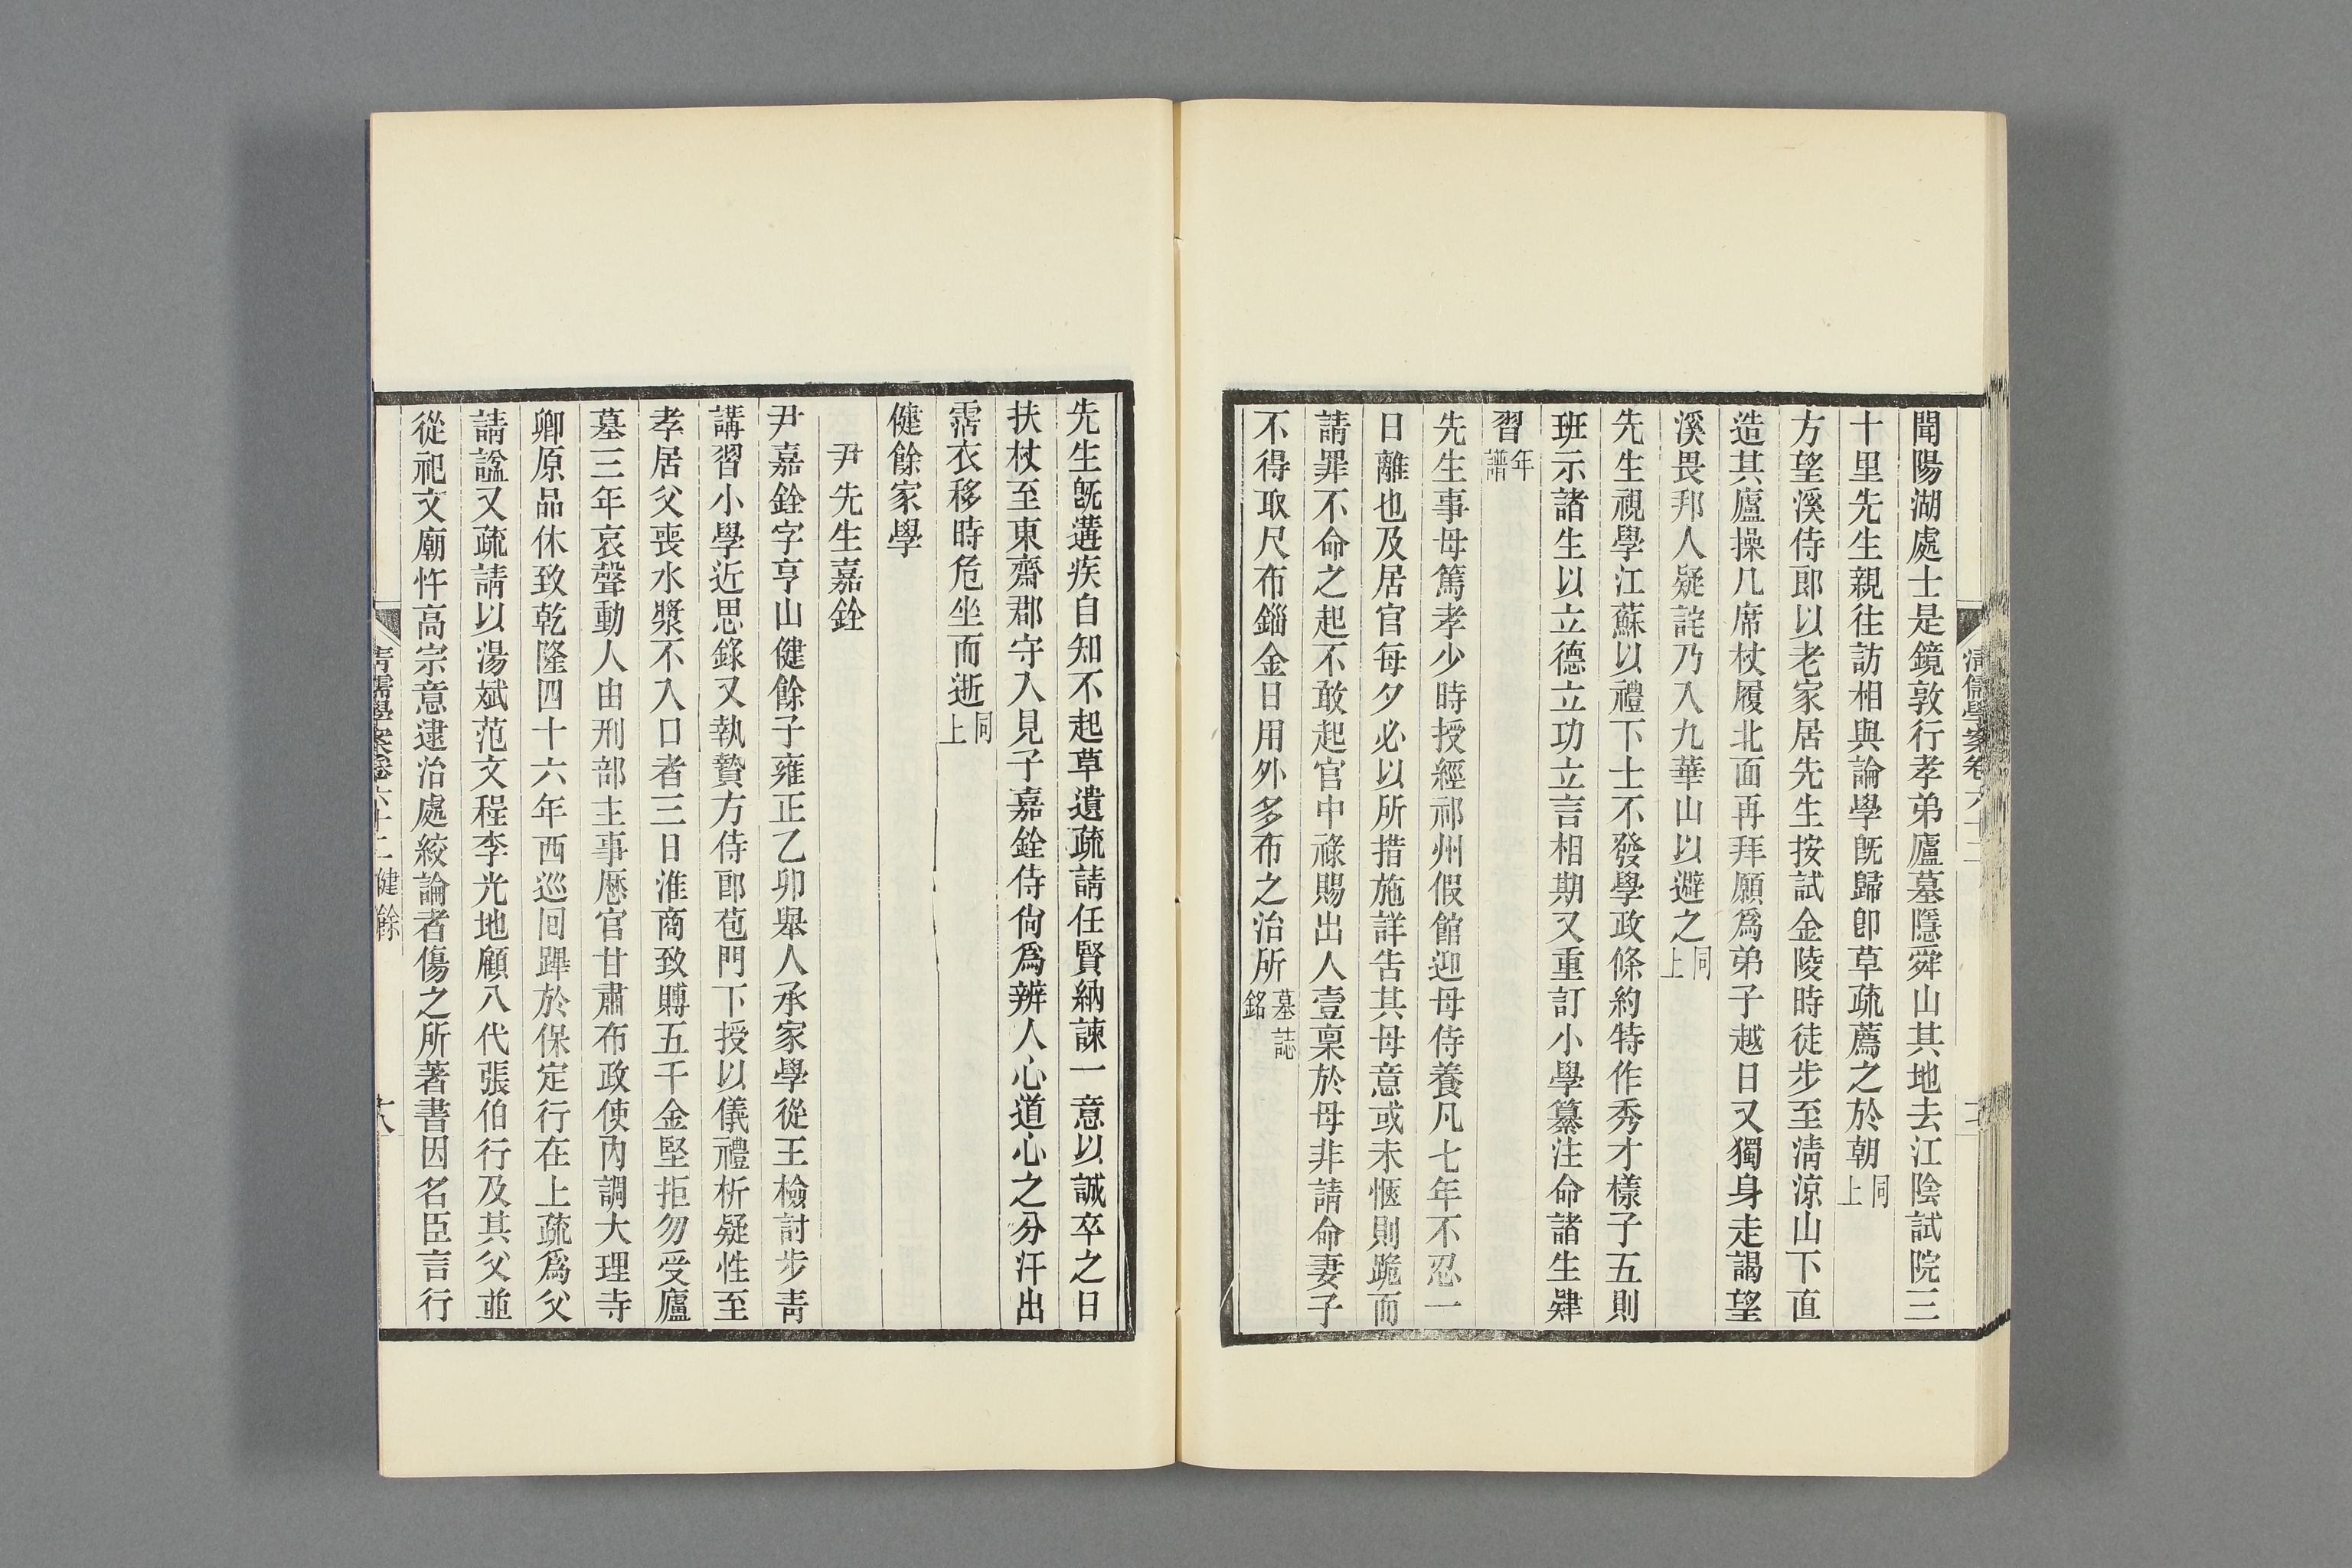 聞陽湖處士是鏡敦行孝弟廬墓隱舜山其地去江陰試院三
十里先生親往訪相與論學旣歸卽草疏薦之於朝同上
方望溪侍郎以老家居先生按試金陵時徒步至淸涼山下直
造其廬操几席杖履北面再拜願爲弟子越日又獨身走謁望
溪畏邦人疑詫乃入九華山以避之同上
先生視學江蘇以禮下士不發學政條約特作秀才樣子五則
班示諸生以立德立功立言相期又重訂小學纂注命諸生肄
習年譜
先生事母篤孝少時授經祁州假館迎母侍養凡七年不忍一
日離也及居官每夕必以所措施詳告其母意或未愜則跪而
請罪不命之起不敢起官中祿賜出入壹稟於母非請命妻子
不得取尺布錙金日用外多布之治所墓誌銘
先生旣遘疾自知不起草遺疏請任賢納諫一意以誠卒之日
扶杖至東齋郡守入見子嘉銓侍尙爲辨人心道心之分汗出
霑衣移時危坐而逝同上
健餘家學
尹先生嘉銓
尹嘉銓字亨山健餘子雍正乙卯舉人承家學從王檢討步靑
講習小學近思錄又執贄方侍郎苞門下授以儀禮析疑性至
孝居父喪水漿不入口者三日淮商致賻五千金堅拒勿受廬
墓三年哀聲動人由刑部主事歷官甘肅布政使內調大理寺
卿原品休致乾隆四十六年西巡回蹕於保定行在上疏爲父
請諡又疏請以湯斌范文程李光地顧八代張伯行及其父並
從祀文廟忤高宗意逮治處絞論者傷之所著書因名臣言行
淸儒學案卷六十二 健餘
十八